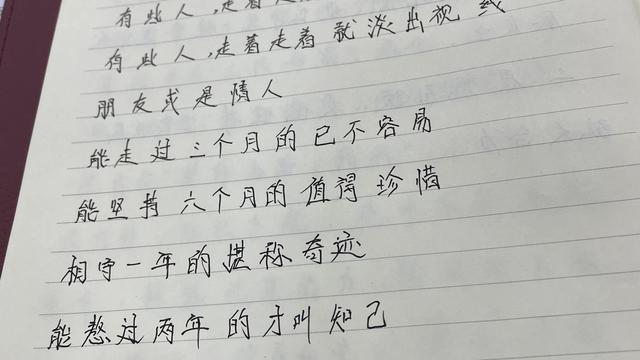 有些人,走着走
有些人,走着走着就淡出视线
朋友或是情人
能走过三个月的已不容易
能坚持六个月的值得珍惜
相守一年的堪称奇迹
能熬过两年的才叫知己